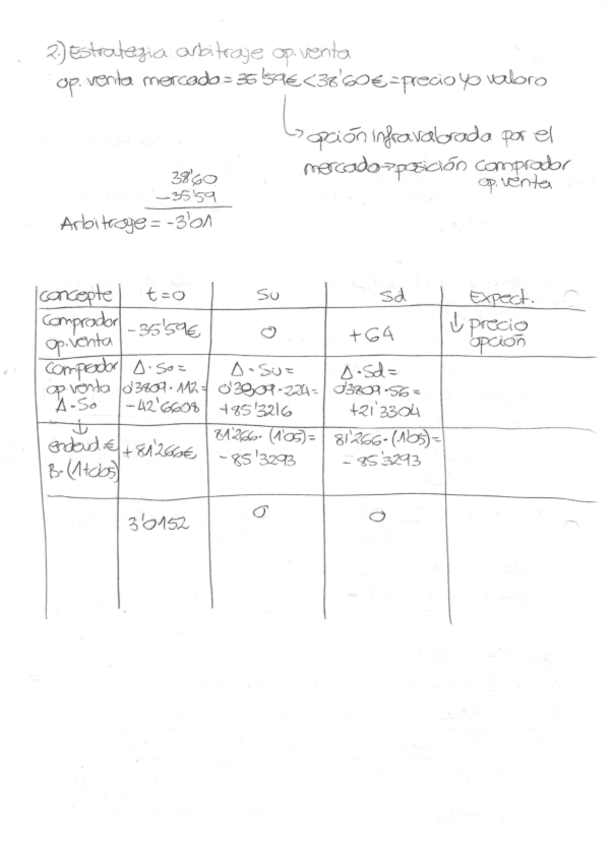 2.) Estrategia arbitraje op. venta
op. venta mercado = 35'59€ < 38'60€ = precio yo valoro
↳ opción infravalorada por el
mercado → posición comprador
op. venta
38'60
- 35'59
Arbitraje = -3'01
concepte | t=0 | Su | Sd | Expect.
Comprador op. venta | -35'59€ | 0 | +64 | ↓ precio opción
Comprador op. venta Δ·So | Δ·So = 0'3809·112 = -42'6608 | Δ·Su = 0'3809·224 = +85'3216 | Δ·Sd = 0'3809·56 = +21'3304
↓ endeud. € B·(1+0'05) | +81'266€ | 81'266·(1'05) = -85'3293 | 81'266·(1'05) = -85'3293
3'0152 | 0 | 0